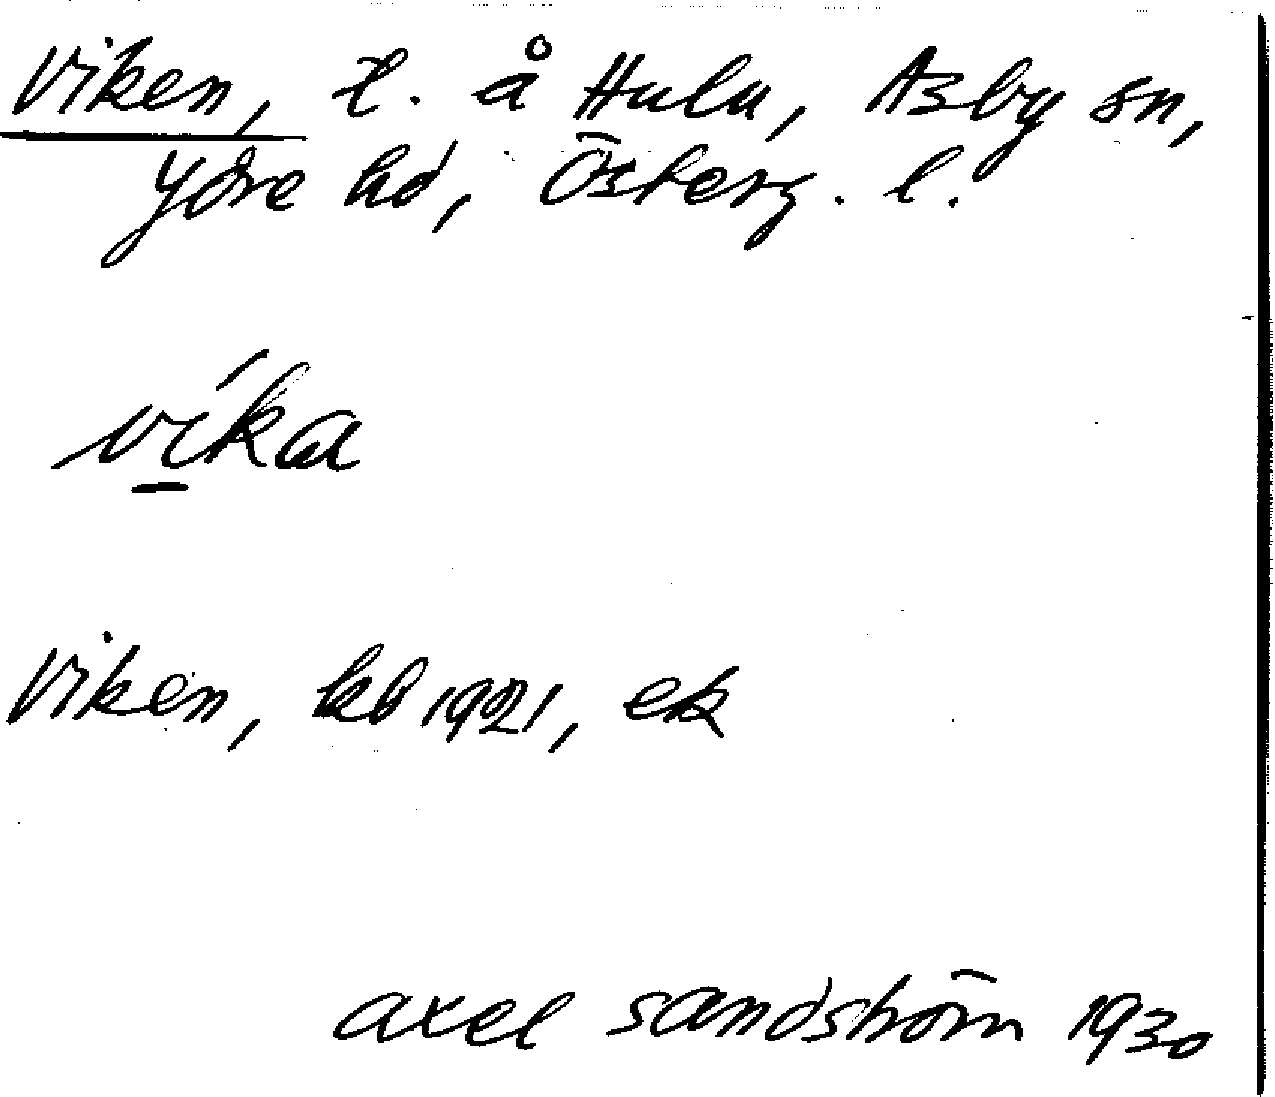 Viken, l. å Hulu, Asby sn,
Ydre hd, Österg. l.
víka
Viken, kb 1921, ek
axel sandström 1930